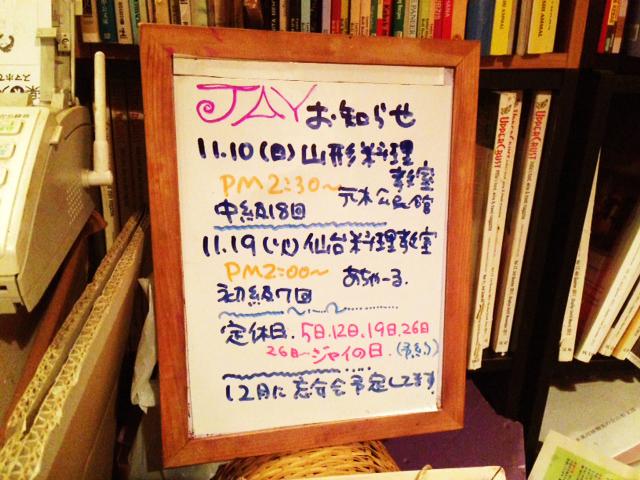 JAY お知らせ
11.10(日)山形料理
教室
PM2:30〜 元木公民館
中級18回
11.19(火)仙台料理教室
PM2:00〜 あちゃーる.
初級7回
定休日.5日.12日.19日.26日
26日〜ジャイの日.(予約)
12月に忘年会予定してます
UPPERCRUST
UPPERCRUST
UPPERCRUST
UPPERCRUST